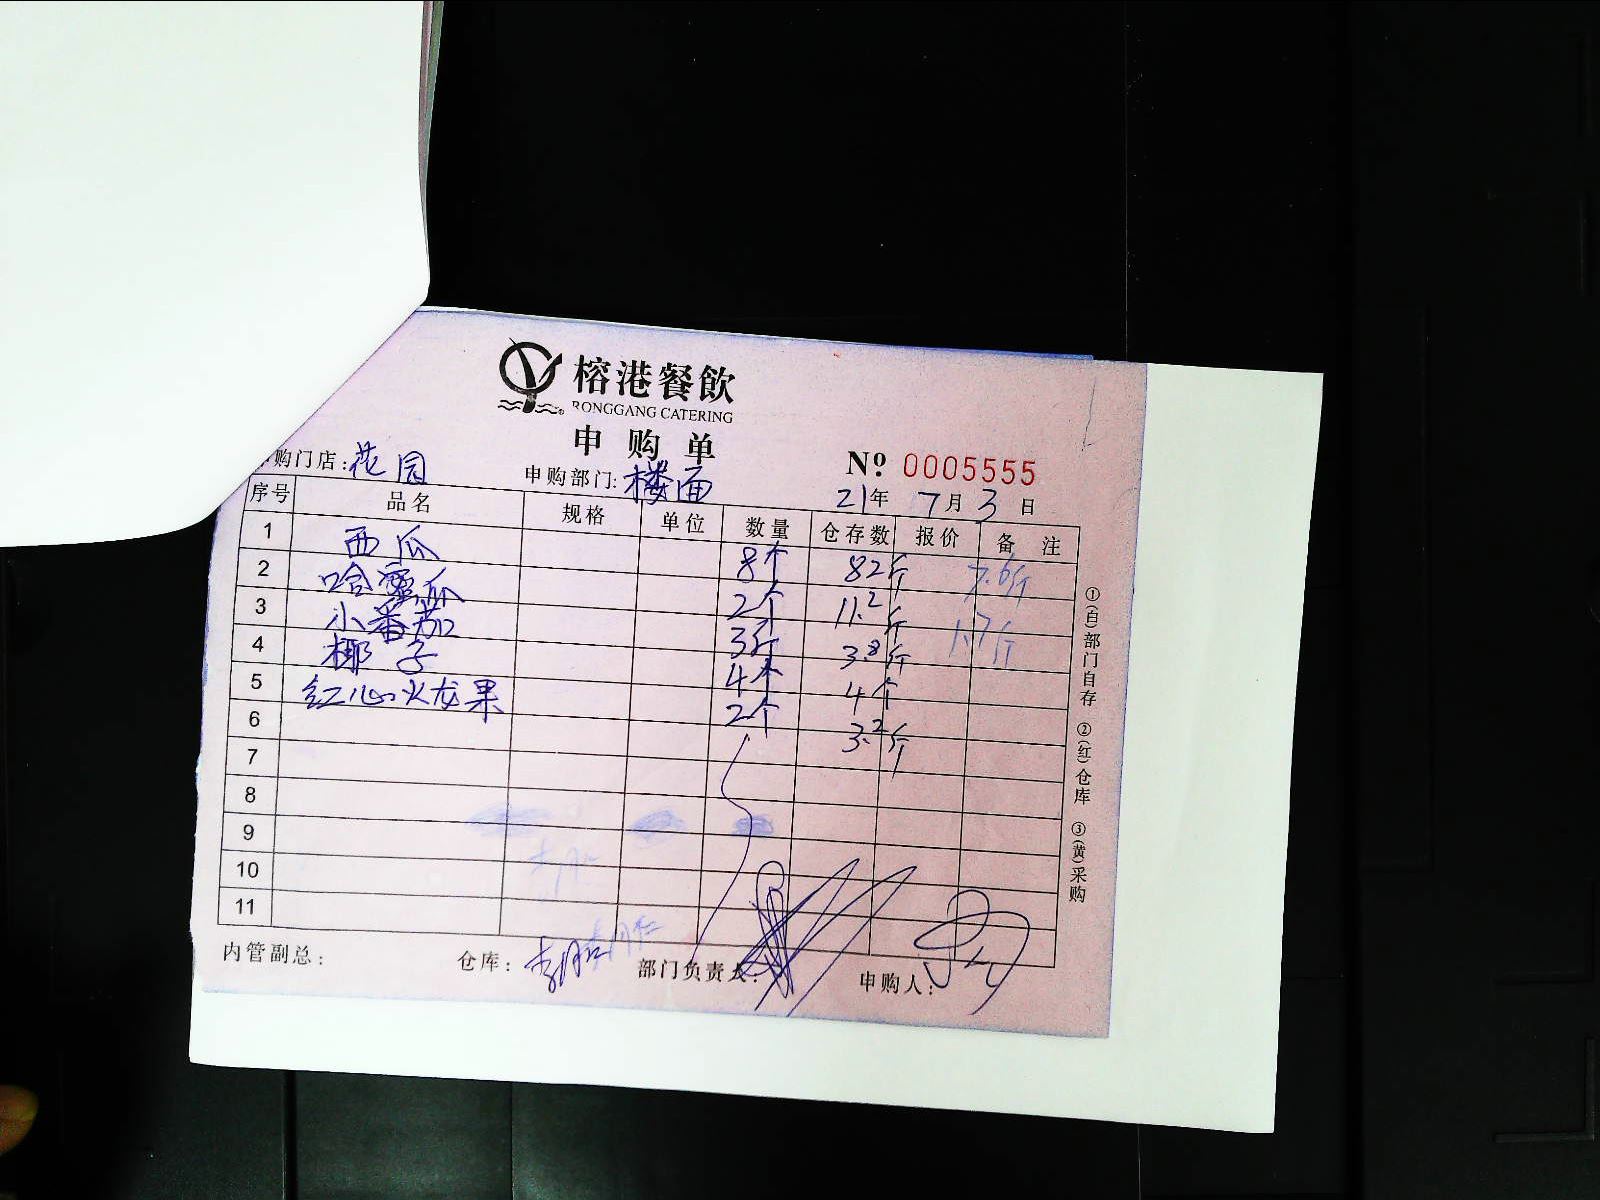 榕港餐飲
RONGGANG CATERING
申购单
购门店:花园 申购部门:楼面 Nº 0005555
21年 7月3日
序号 品名 规格 单位 数量 仓存数 报价 备注
1 西瓜 8个 82斤 7.6斤
2 哈蜜瓜 2个 11.2斤
3 小番茄 3斤 3.8斤 1.7斤
4 椰子 4个 4个
5 红心火龙果 2个 3.2斤
6
7
8
9
10
11
内管副总: 仓库: 部门负责人: 申购人:
①(白)部门自存 ②(红)仓库 ③(黄)采购